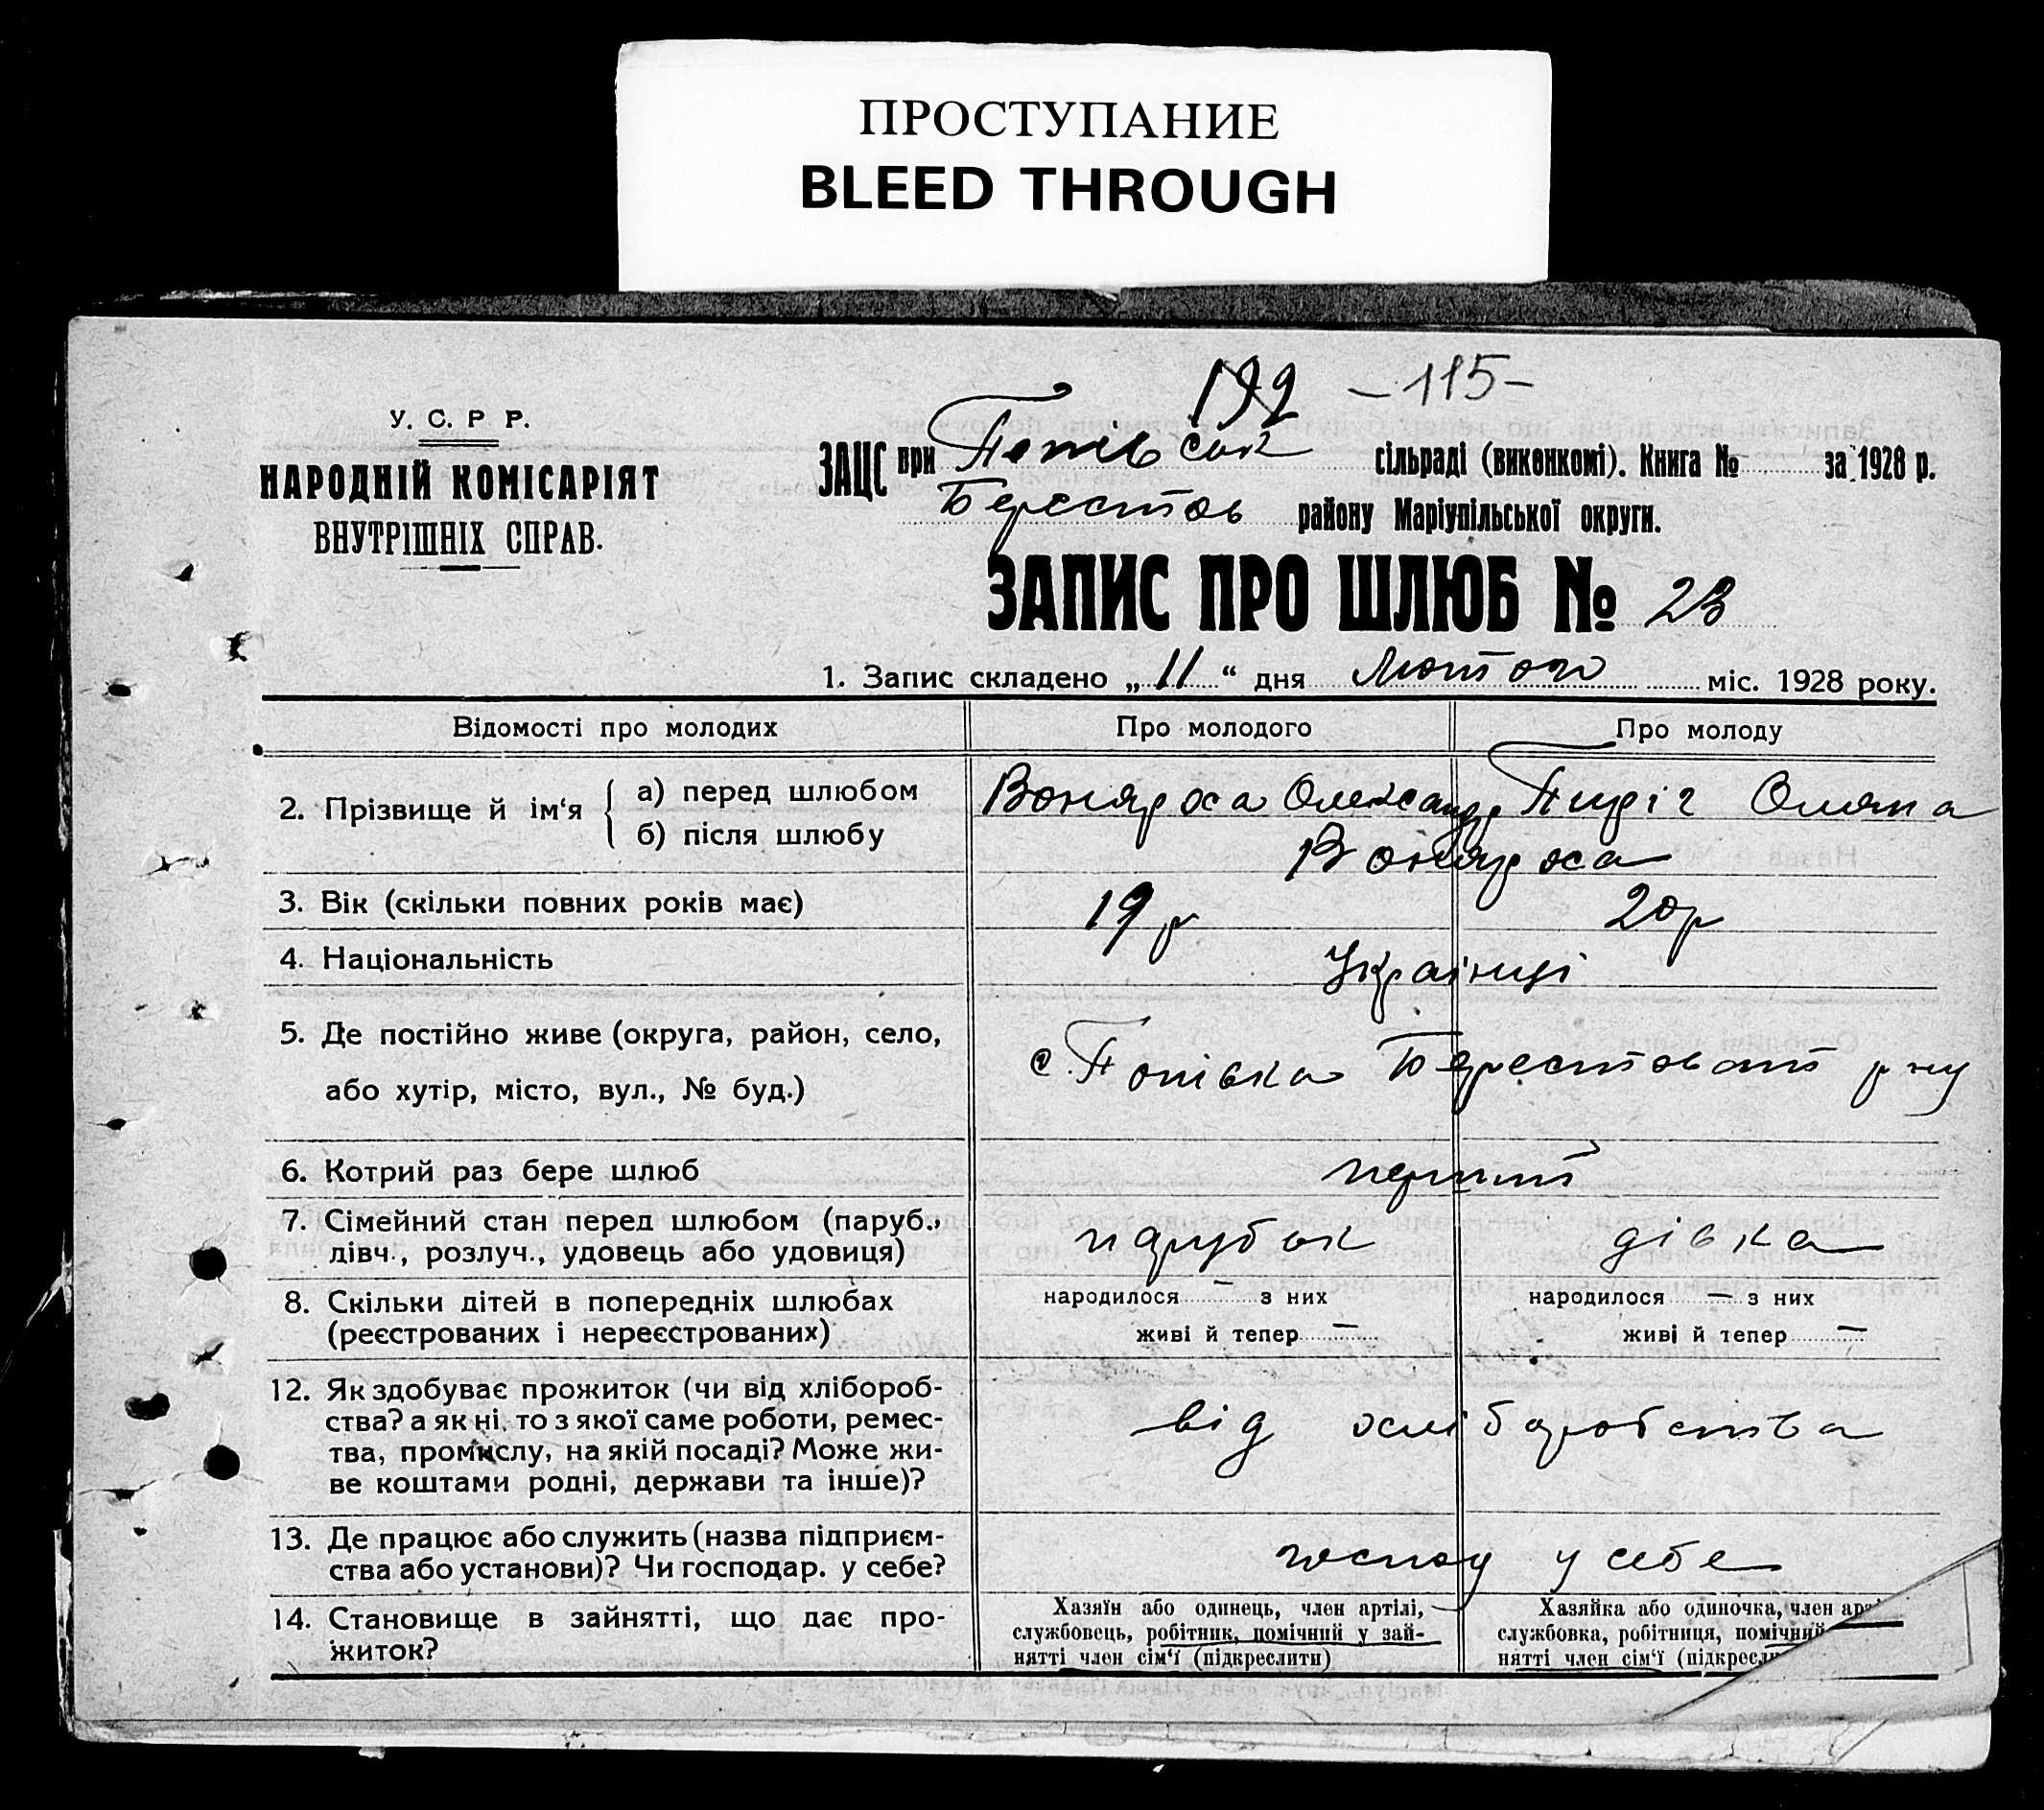 ПРОСТУПАНИЕ
BLEED THROUGH
199 -115-
У. С. Р Р.
НАРОДНІЙ КОМІСАРІЯТ
ВНУТРІШНІХ СПРАВ.
ЗАЦС при Попівськ сільраді (виконкомі). Книга № за 1928 р.
Берестов району Маріупільської округи.
ЗАПИС ПРО ШЛЮБ № 23
1. Запис складено „ 11 “ дня Лютого міс. 1928 року.
Відомості про молодих Про молодого Про молоду
2. Прізвище й ім‘я а) перед шлюбом Олександр Пиріг Оляна
б) після шлюбу
3. Вік (скільки повних років має) 19 р 20 р
4. Національність Українці
5. Де постійно живе (округа, район, село, с. Попівка Берестоват р-ну
або хутір, місто, вул., № буд.)
6. Котрий раз бере шлюб перший
7. Сімейний стан перед шлюбом (паруб., парубок дівка
дівч., розлуч., удовець або удовиця)
8. Скільки дітей в попередніх шлюбах народилося — з них народилося — з них
(реєстрованих і нереєстрованих) живі й тепер — живі й тепер —
12. Як здобуває прожиток (чи від хлібороб-
ства? а як ні, то з якої саме роботи, ремес- від хліборобства
тва, промислу, на якій посаді? Може жи-
ве коштами родні, держави та інше)?
13. Де працює або служить (назва підприєм- господ у себе
ства або установи)? Чи господар. у себе?
14. Становище в зайнятті, що дає про- Хазяїн або одинець, член артілі, Хазяйка або одиночка, член арті
житок? службовець, робітник, помічний у зай- службовка, робітниця, помічний
нятті член сім‘ї (підкреслити) нятті член сім‘ї (підкресли